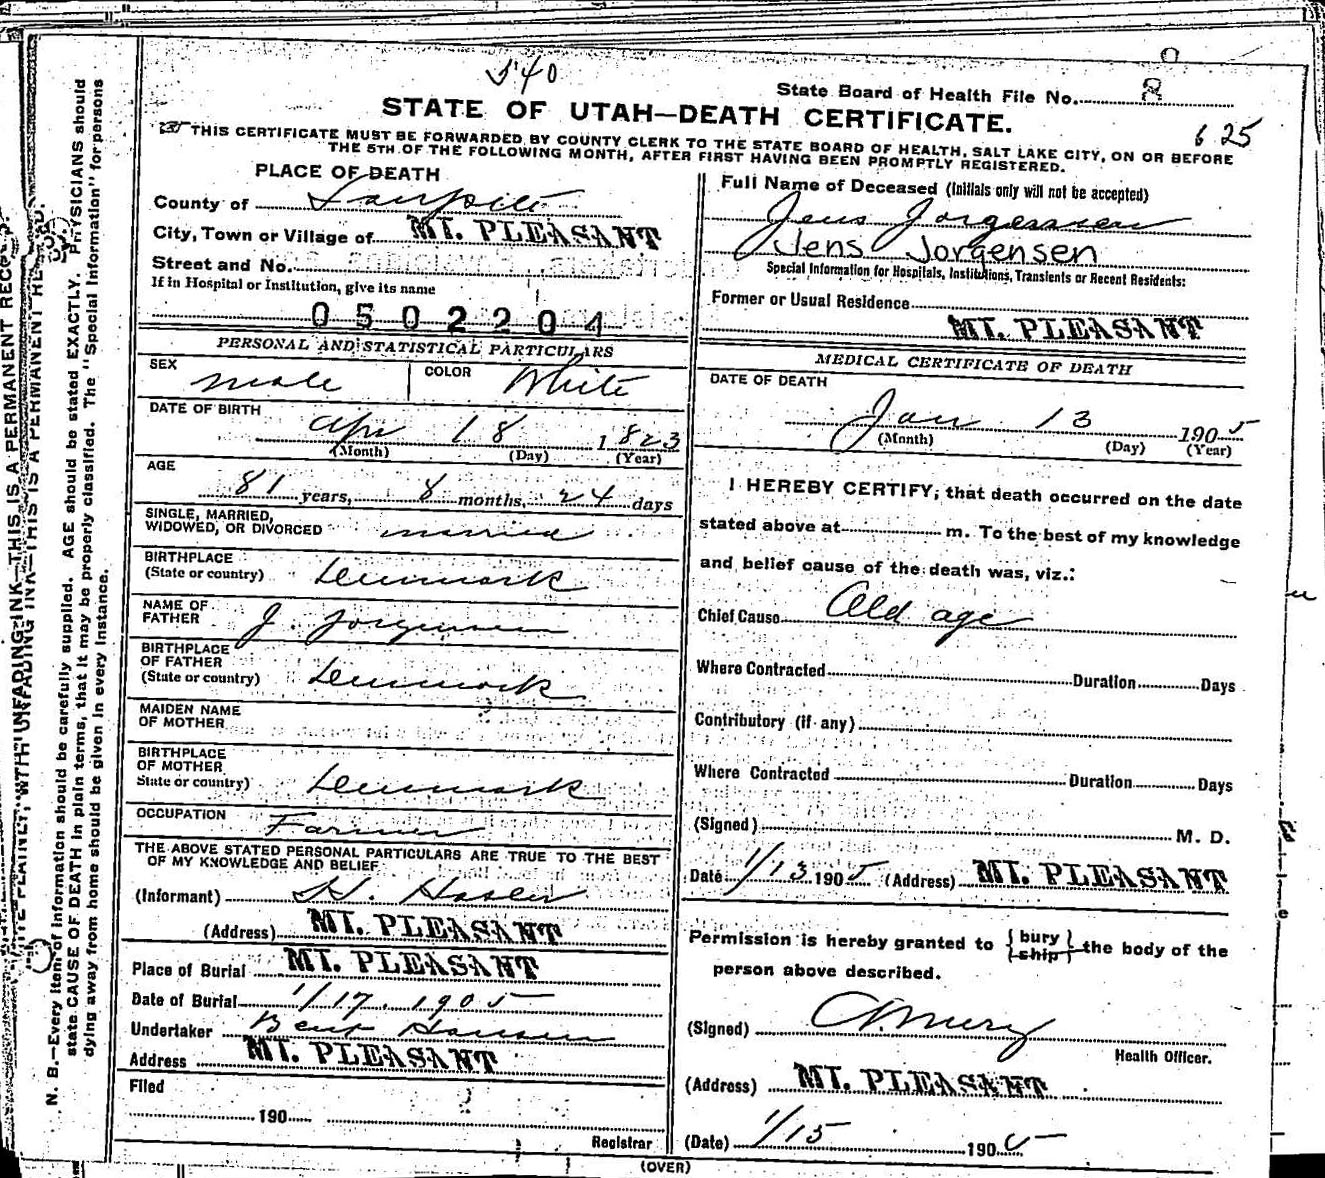 540
State Board of Health File No. 8
STATE OF UTAH—DEATH CERTIFICATE.
625
THIS CERTIFICATE MUST BE FORWARDED BY COUNTY CLERK TO THE STATE BOARD OF HEALTH, SALT LAKE CITY, ON OR BEFORE
THE 5TH OF THE FOLLOWING MONTH, AFTER FIRST HAVING BEEN PROMPTLY REGISTERED.
PLACE OF DEATH
County of Sanpete
City, Town or Village of MT. PLEASANT
Street and No.
If in Hospital or Institution, give its name
0502204
PERSONAL AND STATISTICAL PARTICULARS
SEX male COLOR White
DATE OF BIRTH
Apr 18 1823
(Month) (Day) (Year)
AGE
81 years, 8 months, 24 days
SINGLE, MARRIED,
WIDOWED, OR DIVORCED married
BIRTHPLACE
(State or country) Denmark
NAME OF
FATHER J. Jorgensen
BIRTHPLACE
OF FATHER
(State or country) Denmark
MAIDEN NAME
OF MOTHER
BIRTHPLACE
OF MOTHER
State or country) Denmark
OCCUPATION Farmer
THE ABOVE STATED PERSONAL PARTICULARS ARE TRUE TO THE BEST
OF MY KNOWLEDGE AND BELIEF
(Informant) H. Hasler
(Address) MT. PLEASANT
Place of Burial MT. PLEASANT
Date of Burial 1/17. 1905
Undertaker Bent Hansen
Address MT. PLEASANT
Filed
190
Registrar
Full Name of Deceased (Initials only will not be accepted)
Jens Jorgensen
Jens Jorgensen
Special Information for Hospitals, Institutions, Transients or Recent Residents:
Former or Usual Residence
MT. PLEASANT
MEDICAL CERTIFICATE OF DEATH
DATE OF DEATH
Jan 13 1905
(Month) (Day) (Year)
I HEREBY CERTIFY, that death occurred on the date
stated above at m. To the best of my knowledge
and belief cause of the death was, viz.:
Chief Cause Old age
Where Contracted Duration Days
Contributory (if any)
Where Contracted Duration Days
(Signed) M. D.
Date 1/13 1905 (Address) MT. PLEASANT
Permission is hereby granted to { bury
ship } the body of the
person above described.
(Signed)
Health Officer.
(Address) MT. PLEASANT
(Date) 1/15 1905
(OVER)
N. B.—Every item of information should be carefully supplied. AGE should be stated EXACTLY. PHYSICIANS should
state CAUSE OF DEATH in plain terms, that it may be properly classified. The "Special Information" for persons
dying away from home should be given in every instance.